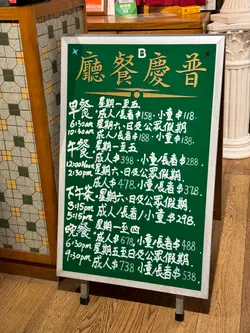 B
普慶餐廳
早餐 星期一至五
6:30am 成人/長者$158、小童$118.
星期六、日及公眾假期
10:30am 成人/長者$188、小童$138.
午餐 星期一至五
12:00noon 成人$398、小童/長者$288.
2:30pm 星期六、日及公眾假期
成人$478、小童/長者$378.
下午茶、星期六、日及公眾假期
3:15pm 成人/長者/小童$298.
5:15pm
晚餐 星期一至四
6:30pm 成人$678、小童/長者$488
星期五至日及公眾假期
9:30pm 成人$738 小童/長者$538.